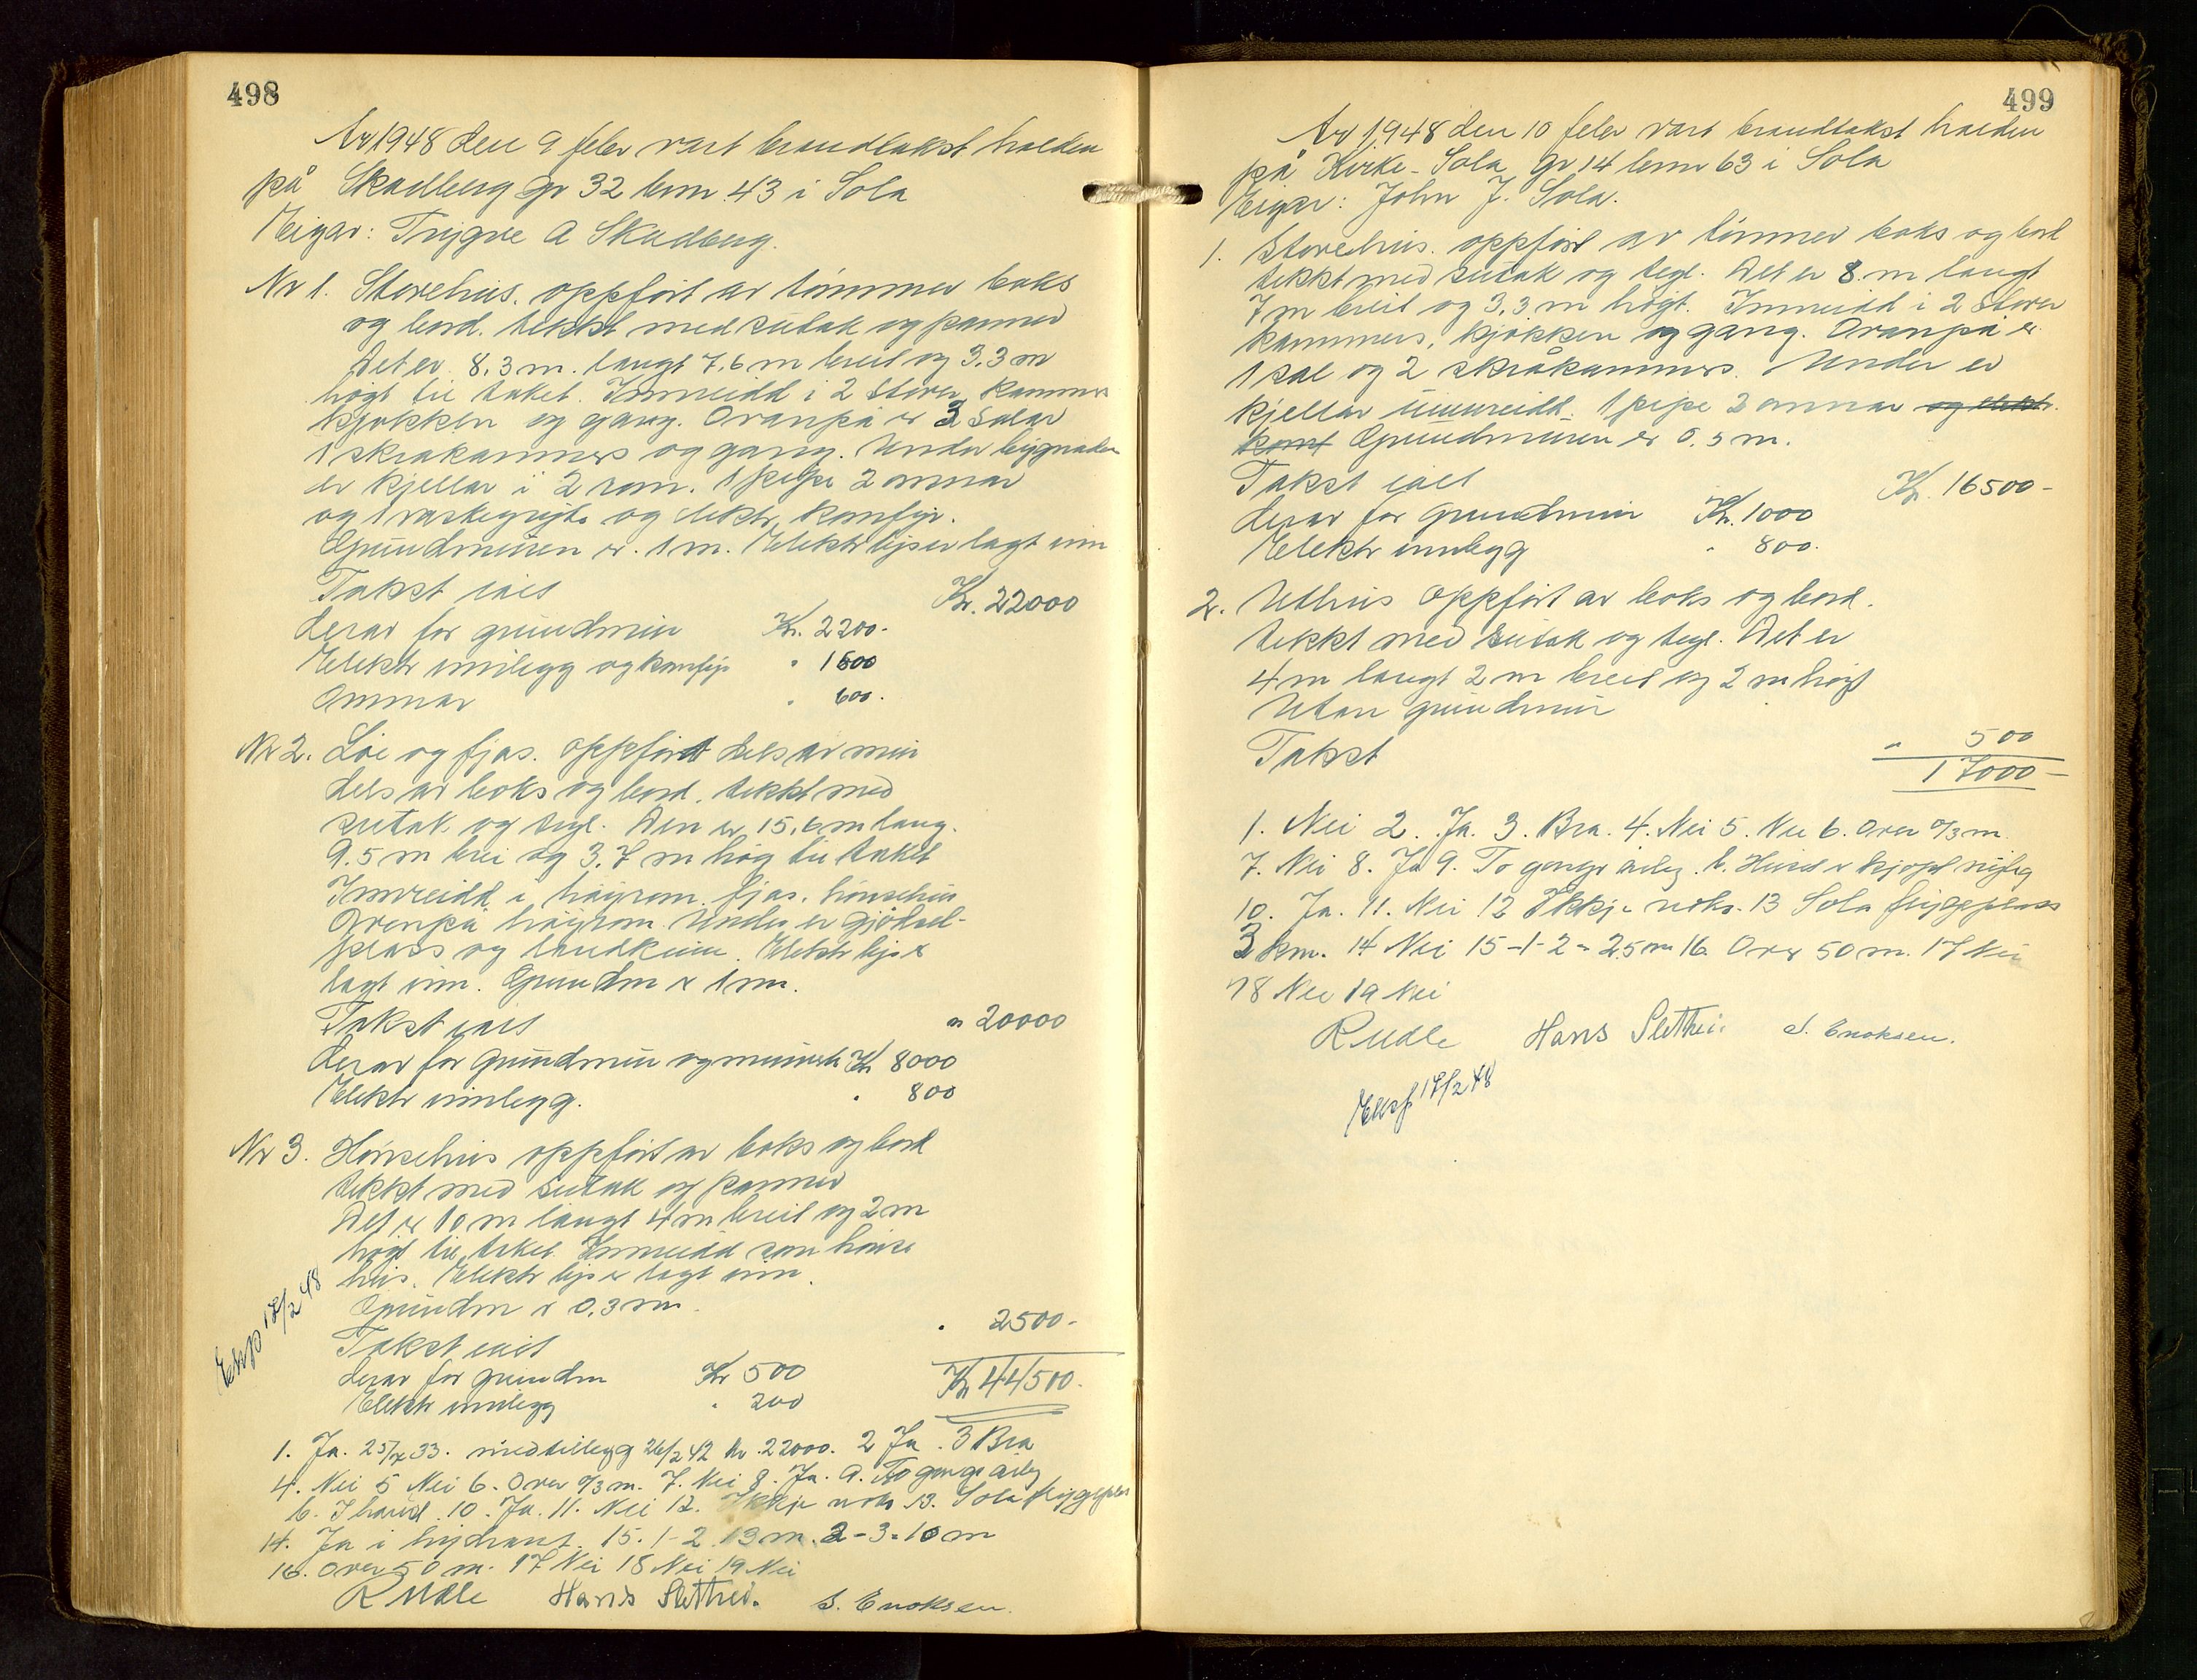 498
År 1948 den 9 febr vart brandtakst halden
på Skadberg gr 32 brn 43 i Sola
Eigar: Trygve A Skadberg.
Nr 1. Stovehus. oppført av tömmer boks
og bord. tekkt med sutak og panner
Det er 8,3 m. langt 7,6 m breit og 3,3 m
högt til taket. Innreidd i 2 stover kammer
kjökken og gang. Ovanpå er 3 salar
1 skråkammers og gang. Under bygnaden
er kjellar i 2 rom. 1 pipe 2 omnar
og 1 vaskegryte og elektr. komfyr.
Grundmuren er. 1 m. Elektr ljos er lagt inn
Takst ialt Kr. 22000
derav for grundmur Kr. 2200.-
Elektr innlegg og komfyr " 1500
Omnar " 600.
Nr 2. Löe og fjos. oppfört dels av mur
dels av boks og bord. tekkt med
sutak og tegl. Den er 15,6 m lang.
9.5 m brei og 3,7 m høg til taket
Innreidd i höyrom fjos. hönsehus
Ovenpå höyrom. Under er gjödsel-
plass og landkum. Elektr ljos er
lagt inn. Grundm er 1 m.
Takst ialt " 20000
derav for grundmur og murverk Kr 8000
Elektr innlegg. " 800
Nr 3. Hönsehus oppfört av boks og bord
tekkt med sutak og panner
Det er 10 m langt 4 m breit og 2 m
högt til taket Innreidd som hönse
hus. Elektr ljos er lagt inn.
Grundm er 0,3 m.
Takst ialt " 2500.-
derav for grundm Kr 500 Kr 44500.-
Elektr innlegg " 200
Eksp 17/2 48
1. Ja. 25/7 33. med tillegg 26/2 42 kr 22000. 2 Ja. 3 Bra
4. Nei 5 Nei 6. Over 0/3 m. 7. Nei 8. Ja. 9. To gongr årleg
b. I hand. 10. Ja. 11. Nei 12. Ikkje noko 13. Sola flygeplass
14. Ja i hydrant. 15. 1-2 13 m. 2-3=10 m
16. Over 50 m. 17 Nei 18 Nei 19 Nei
R Udle Hans Sletthei. S. Enoksen.
499
År 1948 den 10 febr vart brandtakst halden
på Kirke-Sola gr 14 brn 63 i Sola
Eigar: John J. Sola.
1. Stovehus. oppfört av tömmer boks og bord
tekkt med sutak og tegl. Det er 8 m langt
7 m breit og 3,3 m högt. Innreidd i 2 stover
kammers, kjökken og gang. Ovanpå er
1 sal og 2 skråkammers. Under er
kjellar uinnreidd. 1 pipe 2 omnar og elektr.
komf Grundmuren er 0.5 m.
Takst ialt Kr. 16500-
derav for grundmur Kr. 1000
Elektr innlegg " 800.
2. Uthus oppfört av boks og bord.
tekkt med sutak og tegl. Det er
4 m langt 2 m breit og 2 m högt
Utan grundmur
Takst " 500
17000-
1. Nei 2. Ja. 3. Bra. 4. Nei 5. Nei 6. Over 0/3 m.
7. Nei 8. Ja 9. To gongr årleg. b. Huset er kjöpt nyleg
10. Ja. 11. Nei 12 Ikkje noko. 13 Sola flygeplass
3 km. 14 Nei 15-1-2=25 m 16. Over 50 m. 17 Nei
18 Nei 19 Nei
R Udle Hans Sletthei S. Enoksen.
Eksp 17/2 48